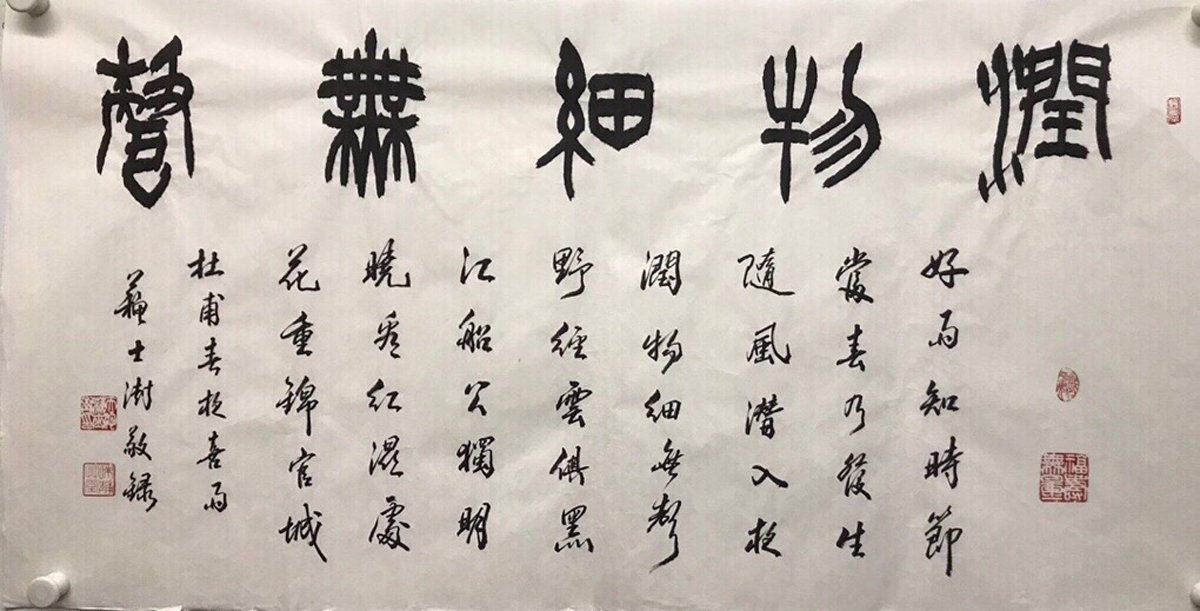 潤物細無聲
好雨知時節
當春乃發生
隨風潛入夜
潤物細無聲
野徑雲俱黑
江船火獨明
曉看紅濕處
花重錦官城
杜甫春夜喜雨
蘇士澍敬錄
福壽無量